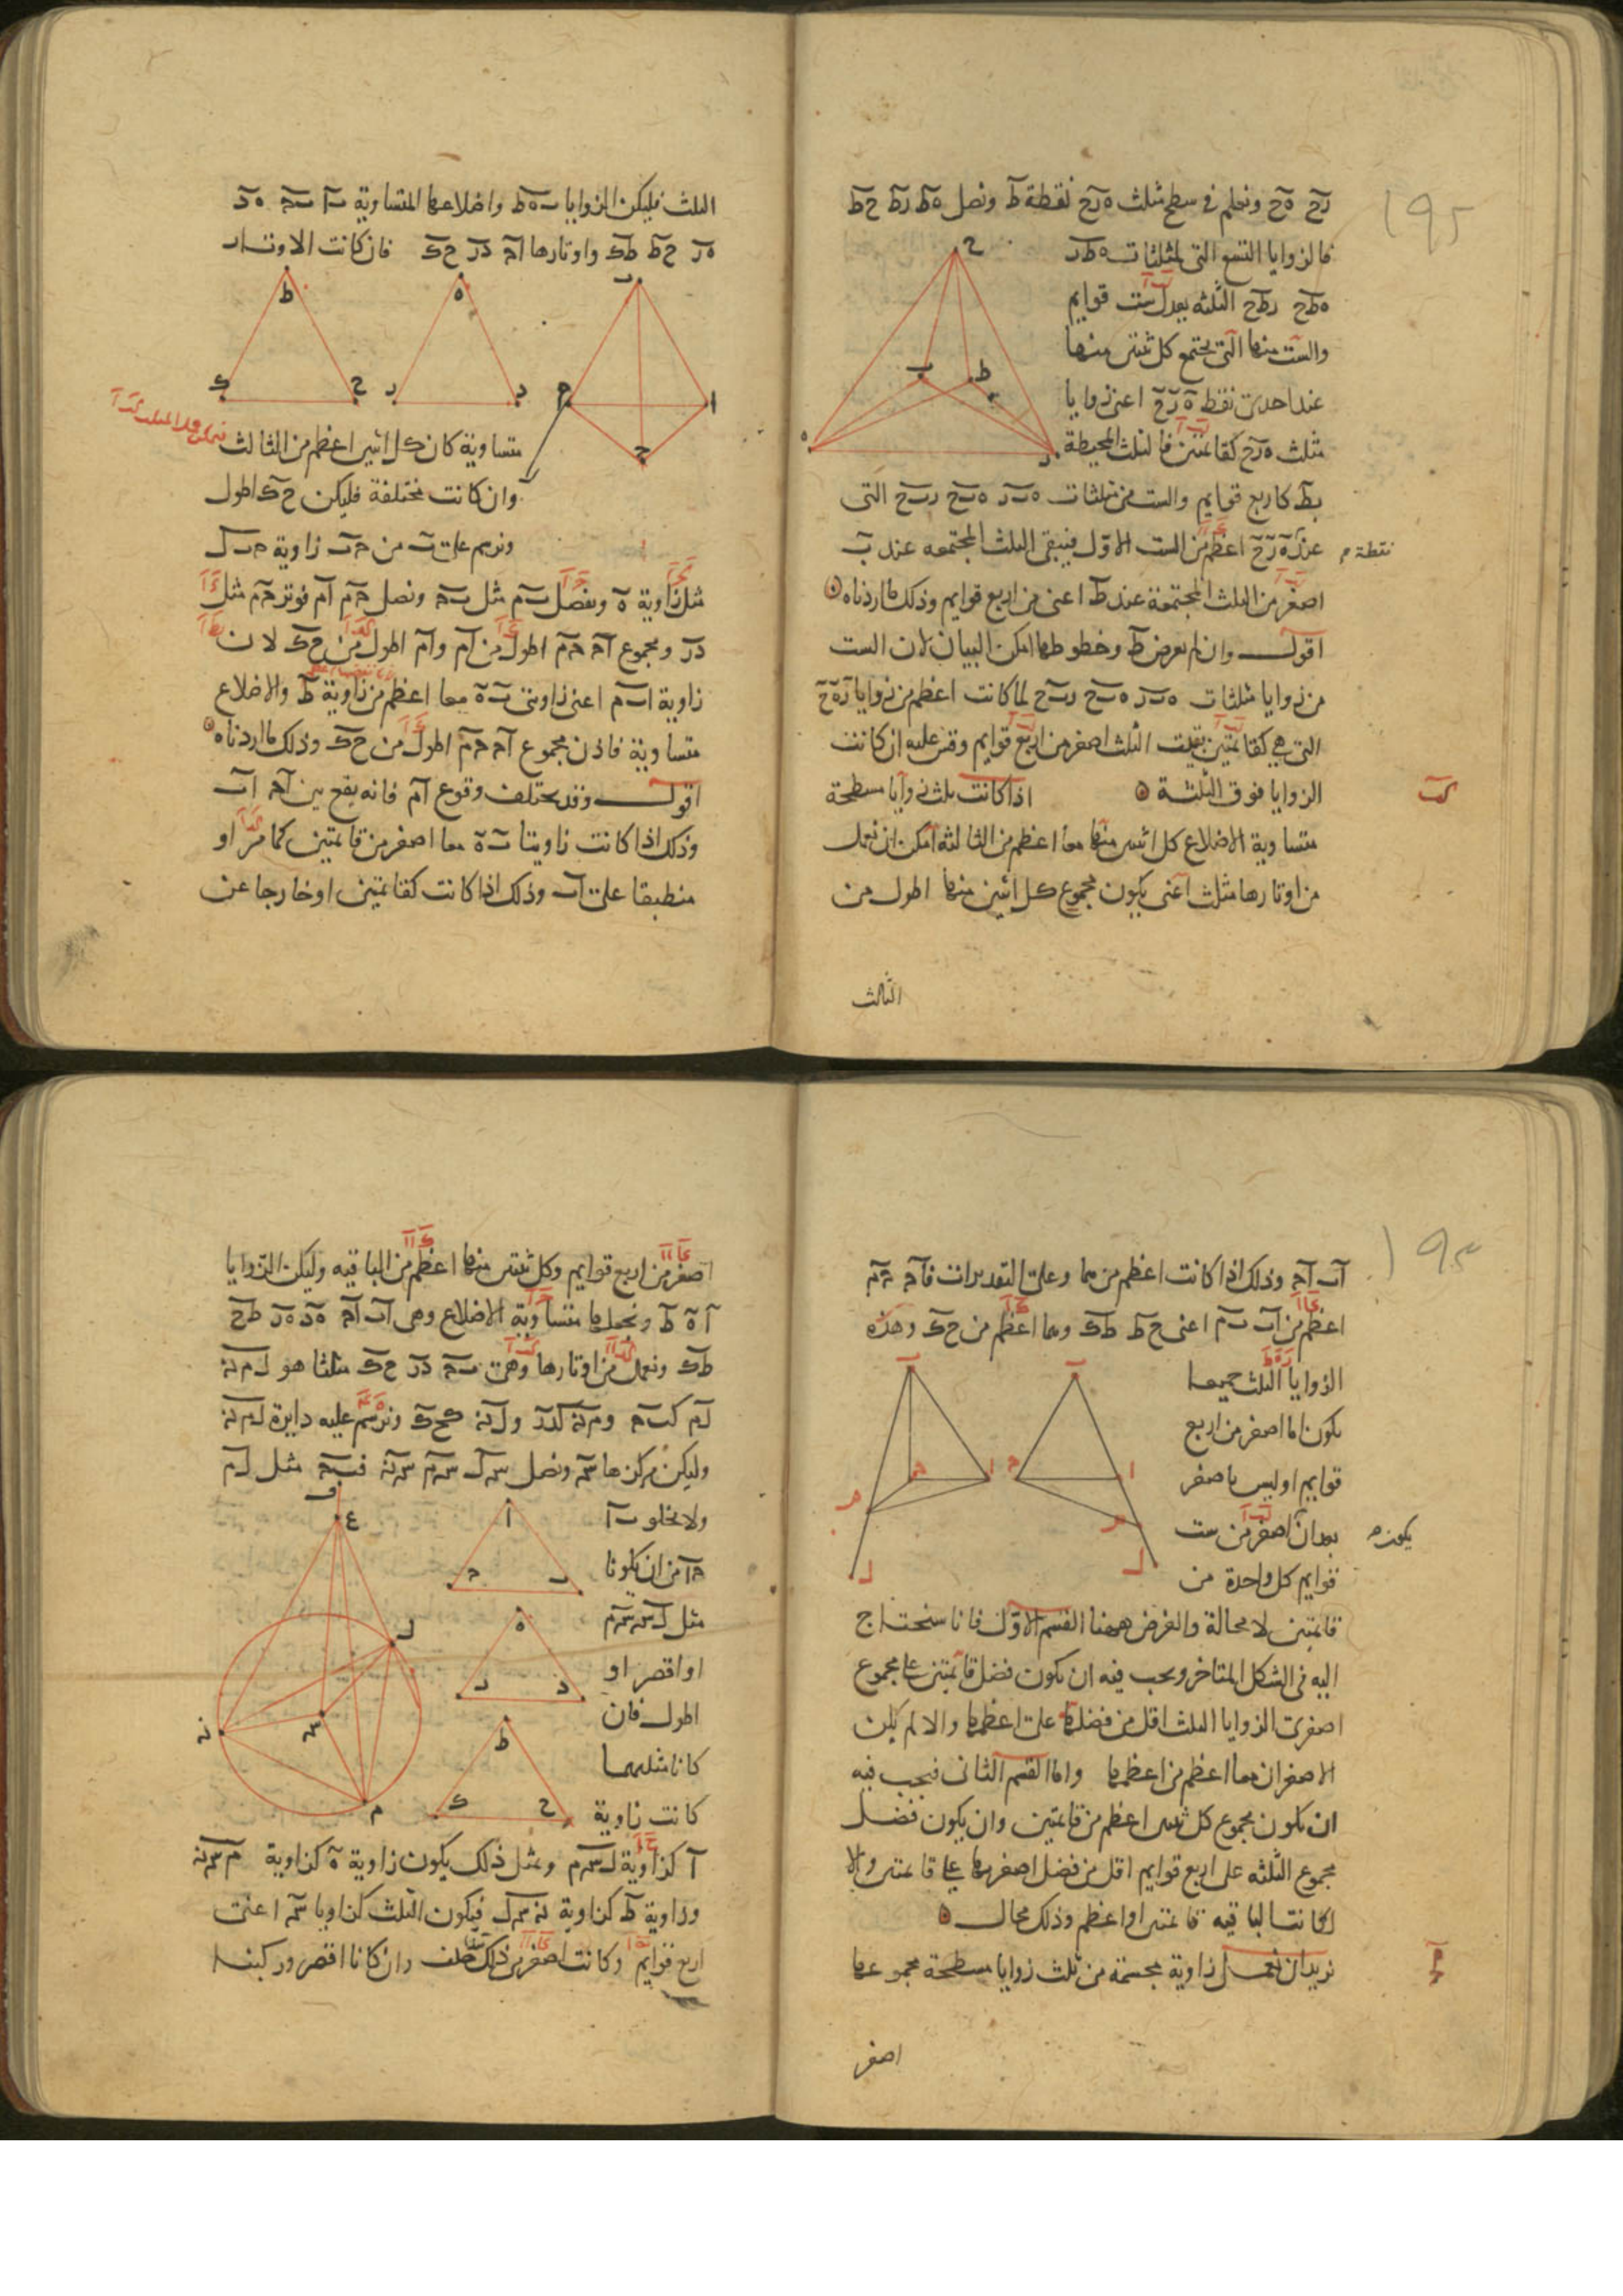 ١٩٤
رح ه‍ح ونعلم في سطح مثلث ه‍رح نقطة ط ونصل ه‍ط رط حط
فالزوايا التسع التي لمثلثات ه‍طر
ه‍طح رطح الثلثه يعدل ست قوايم
والست منها التي يجتمع كل ثنتين منها
عند احدى نقط ه‍ ر ح اعنى زوايا
مثلث ه‍رح كقائمتين فالثلث المحيطة
بط كاربع قوايم والست من مثلثات ه‍ب‍ر ه‍ب‍ح رب‍ح التى
عند ه‍ ر ح اعظم من الست الاول فيبقى الثلث المجتمعه عند ب
نقطة م
اصغر من الثلث المجتمعة عند ط اعنى من اربع قوايم وذلك ما اردناه
اقول وان لم نعرض ط وخطوطها امكن البيان لان الست
من زوايا مثلثات ه‍ب‍ر ه‍ب‍ح رب‍ح لما كانت اعظم من زوايا ر ه‍ ح
التي هي كقائمتين بقيت الثلث اصغر من اربع قوايم وقس عليه ان كانت
الزوايا فوق الثلثة اذا كانت ثلث زوايا مسطحة
كب
متساوية الاضلاع كل اثنين منها معا اعظم من الثالثه امكن ان نعمل
من اوتارها مثلث اعنى يكون مجموع كل اثنين منها اطول من
الثالث
الثلث فليكن الزوايا ب ه‍ ط واضلاعها المتساوية ب‍ا ب‍ج ه‍د
ه‍ر حط طك واوتارها اج در حك فان كانت الاوتار
متساوية كان كل اثنين اعظم من الثالث
وان كانت مختلفة فليكن حك اطول
ونرسم على ب من جب زاوية جب‍ل
مثل زاوية ه‍ ونفصل ب‍م مثل ب‍ج ونصل جم ام فوتر جم مثل
در ومجموع اج جم اطول من ام وام اطول من حك لان
زاوية اب‍م اعنى زاويتى ب ه‍ معا اعظم من زاوية ط والاضلاع
متساوية فاذن مجموع اج جم اطول من حك وذلك ما اردناه
اقول وقد يختلف وقوع ام فانه يقع بين اج اب
وذلك اذا كانت زاويتا ب ه‍ معا اصغر من قائمتين كما مر او
منطبقا على اب وذلك اذا كانت كقائمتين او خارجا عن
١٩٥
اب اج وذلك اذا كانت اعظم منهما وعلى التقديرات فاج جم
اعظم من اب ب‍م اعنى حط طك وهما اعظم من حك وهذه
الزوايا الثلث جميعا
يكون اما اصغر من اربع
قوايم او ليس باصغر
بعد ان اصغر من ست
يكون
قوايم كل واحدة من
قائمتين لا محالة والغرض ههنا القسم الاول فانا سنحتاج
اليه في الشكل المتاخر ويجب فيه ان يكون فضل قائمتين على مجموع
اصغرى الزوايا الثلث اقل من فضلها على اعظمها والا لم يكن
الاصغران معا اعظم من اعظمها واما القسم الثانى فيجب فيه
ان يكون مجموع كل ثنتين اعظم من قائمتين وان يكون فضل
مجموع الثلثه على اربع قوايم اقل من فضل اصغرها على قائمتين والا
لكانت الباقيه قائمتين او اعظم وذلك محال
نريد ان نعمل زاوية مجسمة من ثلث زوايا مسطحة مجموعها
كج
اصغر
اصغر من اربع قوايم وكل ثنتين منها اعظم من الباقيه وليكن الزوايا
ا ه‍ ط ونجعلها متساوية الاضلاع وهى اب اج ه‍د ه‍ر طح
طك ونعمل من اوتارها وهى ب‍ج در حك مثلثا هو ل‍م‍ن
ل‍م كب‍ج وم‍ن كدر ول‍ن كحك ونرسم عليه دايرة ل‍م‍ن
وليكن مركزها س ونصل س‍ل س‍م س‍ن فب‍ج مثل ل‍م
ولا يخلو ب‍ا
جا من ان يكونا
مثل ل‍س س‍م
او اقصر او
اطول فان
كانا مثلهما
كانت زاوية
ا كزاوية ل‍س‍م وبمثل ذلك يكون زاوية ه‍ كزاوية م‍س‍ن
وزاوية ط كزاوية ن‍س‍ل فيكون الثلث كزوايا س اعنى
اربع قوايم وكانت اصغر من ذلك خلف وان كانا اقصر وركبنا